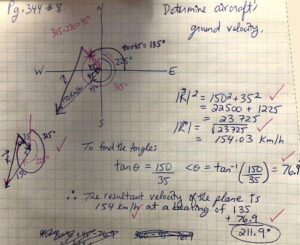 Pg. 344 # 8.
Determine aircraft's
ground velocity.
N
315-270=45°
90+45=135°
225°
W
E
45°
S
150 km/h
|R|² = 150² + 35²
= 22500 + 1225
= 23 725
|R| = √23725
= 154.03 km/h
To find the Angles
tanθ = 150/35
<θ = tan⁻¹(150/35) = 76.9
∴ The resultant velocity of the plane is
154 km/h at a bearing of 135
+ 76.9
211.9°